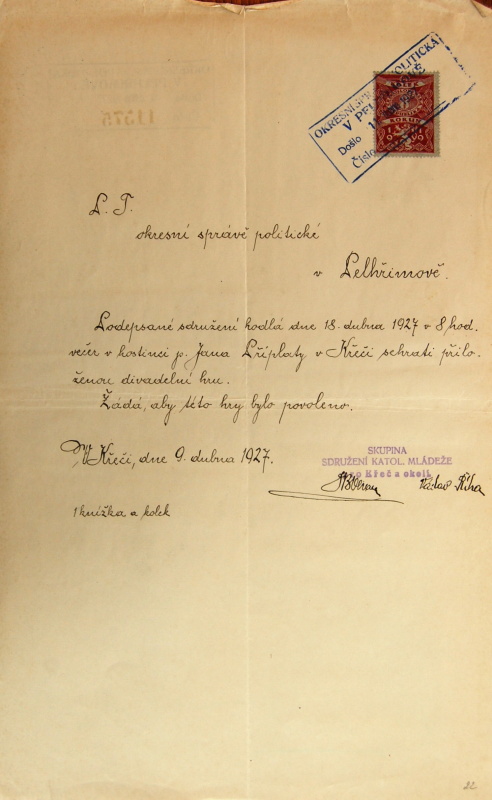 OKRESNÍ SPRÁVA POLITICKÁ
V PELHŘIMOVĚ
Došlo
Číslo
11575
KOLEK
KORUNA
L. T.
okresní správě politické
v Pelhřimově.
Podepsané sdružení hodlá dne 18. dubna 1927 v 8 hod.
večer v hostinci p. Jana Příplaty v Křeči sehrati přilo-
ženou divadelní hru.
Žádá, aby této hry bylo povoleno.
V Křeči, dne 9. dubna 1927.
SKUPINA
SDRUŽENÍ KATOL. MLÁDEŽE
pro Křeč a okolí.
Václav Říha
1 knížka a kolek
22